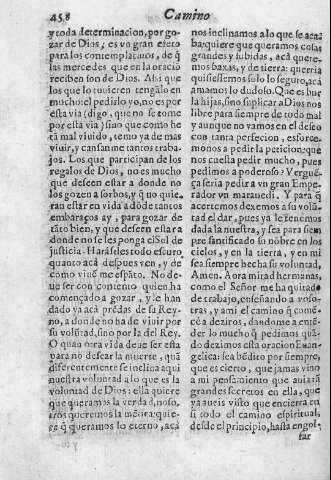 458
Camino
y toda determinacion, por go-
zar de Dios; es vn gran efeto
para los contemplatiuos, de q̃
las mercedes que en la oraciõ
reciben son de Dios. Assi que
los que lo tuuieren tengãlo en
mucho: el pedirlo yo, no es por
esta via (digo, que no se tome
por esta via) sino que como he
tã mal viuido, temo ya de mas
viuir, y cansanme tantos traba-
jos. Los que participan de los
regalos de Dios, no es mucho
que deseen estar a donde no
los gozen a sorbos, y q̃ no quie-
ran estãr en vida a dõde tantos
embaraços ay, para gozar de
tãto bien, y que deseen estar a
donde no se les ponga el Sol de
justicia. Haràseles todo escuro,
quanto acâ despues ven, y de
como viuẽ me espãto. No de-
ue ser con contento quien ha
començado a gozar, y le han
dado ya acà prẽdas de su Rey-
no, a donde no ha de viuir por
su volũtad, sino por la del Rey.
O quan otra vida deue ser esta
para no desear la muerte, quã
diferentemente se inclina aqui
nuestra voluntad a lo que es la
voluntad de Dios: ella quiere
que queramos la verdad, noso-
tros queremos la mẽtira: quie-
re q̃ queramos lo eterno, acà
nos inclinamos a lo que se acaba:
quiere que queramos cosas
grandes y subidas, acà quere-
mos baxas, y de tierra: querria
quisiessemos solo lo seguro, acà
amamos lo dudoso. Que es bur
la hijas, sino suplicar a Dios nos
libre para siempre de todo mal
y aunque no vamos en el deseo
con tanta perfecion, esforce-
monos a pedir la peticion: que
nos cuesta pedir mucho, pues
pedimos a poderoso? Verguẽ-
ça seria pedir a vn gran Empe-
rador vn marauedi. Y para q̃
acertemos dexemos a su volũ-
tad el dar, pues ya le tenemos
dada la nuestra, y sea para siem
pre santificado su nõbre en los
cielos, y en la tierra, y en mi
sea siempre hecha su voluntad,
Amen. Aora mirad hermanas,
como el Señor me ha quitado
de trabajo, enseñando a voso-
tras, y a mi el camino q̃ comẽ-
cè a deziros, dandome a entẽ-
der lo mucho q̃ pedimos quã-
do dezimos esta oracion Euan-
gelica: sea bẽdito por siempre,
que es cierto, que jamas vino
a mi pensamiento que auia tã
grandes secretos en ella, que
ya aueis visto que encierra en
si todo el camino espiritual,
desde el principio, hasta engol-
far